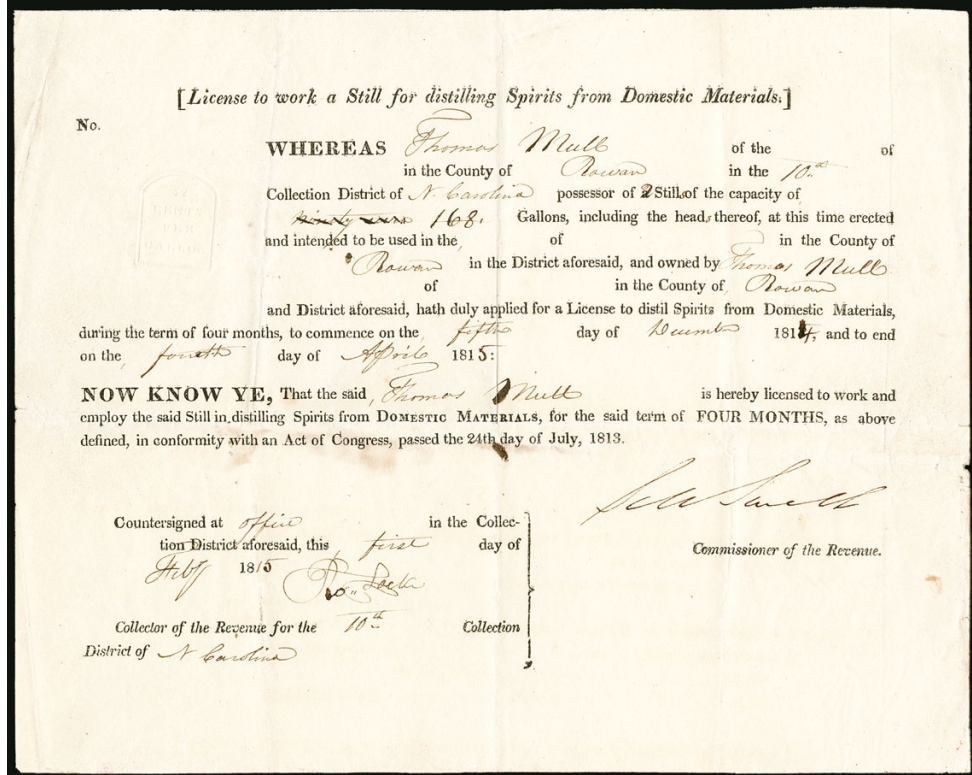 [License to work a Still for distilling Spirits from Domestic Materials.]
No.
WHEREAS Thomas Mull of the of
in the County of Rowan in the 10th
Collection District of N. Carolina possessor of 2 Stills of the capacity of
168. Gallons, including the heads thereof, at this time erected
and intended to be used in the, of in the County of
Rowan in the District aforesaid, and owned by Thomas Mull
of in the County of Rowan
and District aforesaid, hath duly applied for a License to distil Spirits from Domestic Materials,
during the term of four months, to commence on the fifth day of December 1814, and to end
on the fourth day of April 1815:
NOW KNOW YE, That the said, Thomas Mull is hereby licensed to work and
employ the said Still in distilling Spirits from DOMESTIC MATERIALS, for the said term of FOUR MONTHS, as above
defined, in conformity with an Act of Congress, passed the 24th day of July, 1813.
CENTS
PER
GALLON
Commissioner of the Revenue.
Countersigned at office in the Collec-
tion District aforesaid, this first day of
Feby 1815
Locke
Collector of the Revenue for the 10th Collection
District of N Carolina